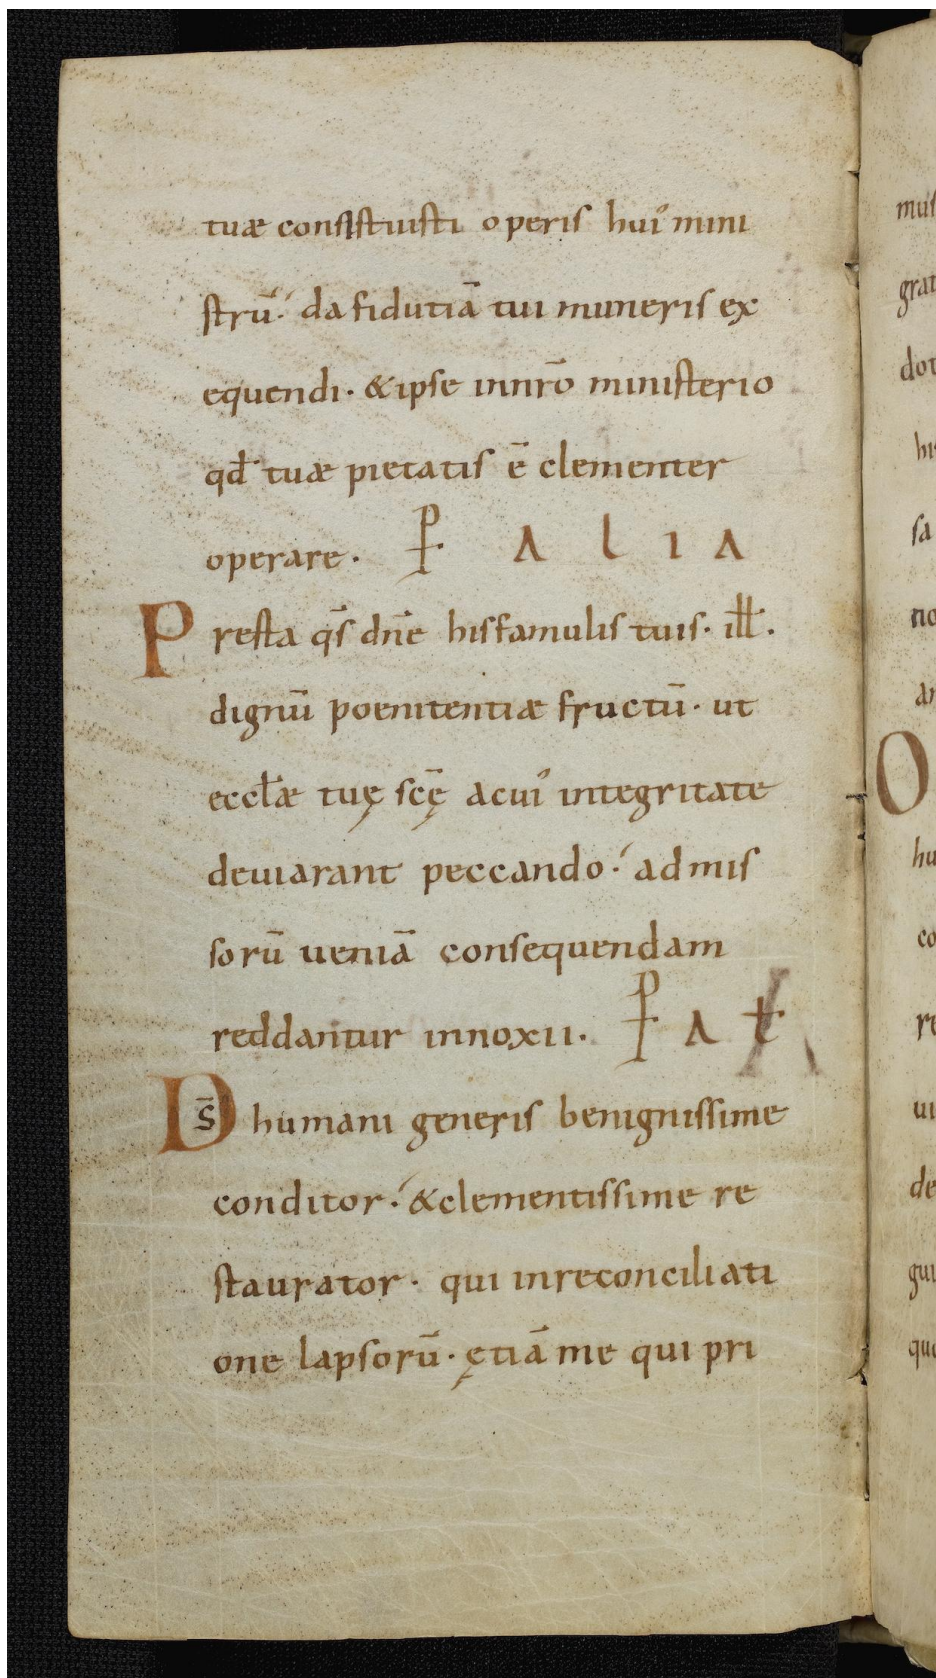 tuæ consistuisti operis hui᾽ mini
strū· da fidutiā tui muneris ex
equendi· & ipse innrō ministerio
qđ tuæ pietatis ē clementer
operare· P alia
Presta q̄s dn̄e his famulis tuis· ill̄·
dignū poenitentiæ fructū· ut
eccłæ tuę scę̄ acui᾽ integritate
deuiarant peccando· admis
sorū ueniā consequendam
reddantur innoxii· P at
Ds̄ humani generis benignissime
conditor· & clementissime re
staurator· qui inreconciliati
one lapsorū· ętiā me qui pri
mus
grat
dot
his
sa
no
an
O
hu
co
re
ui
de
gui
que